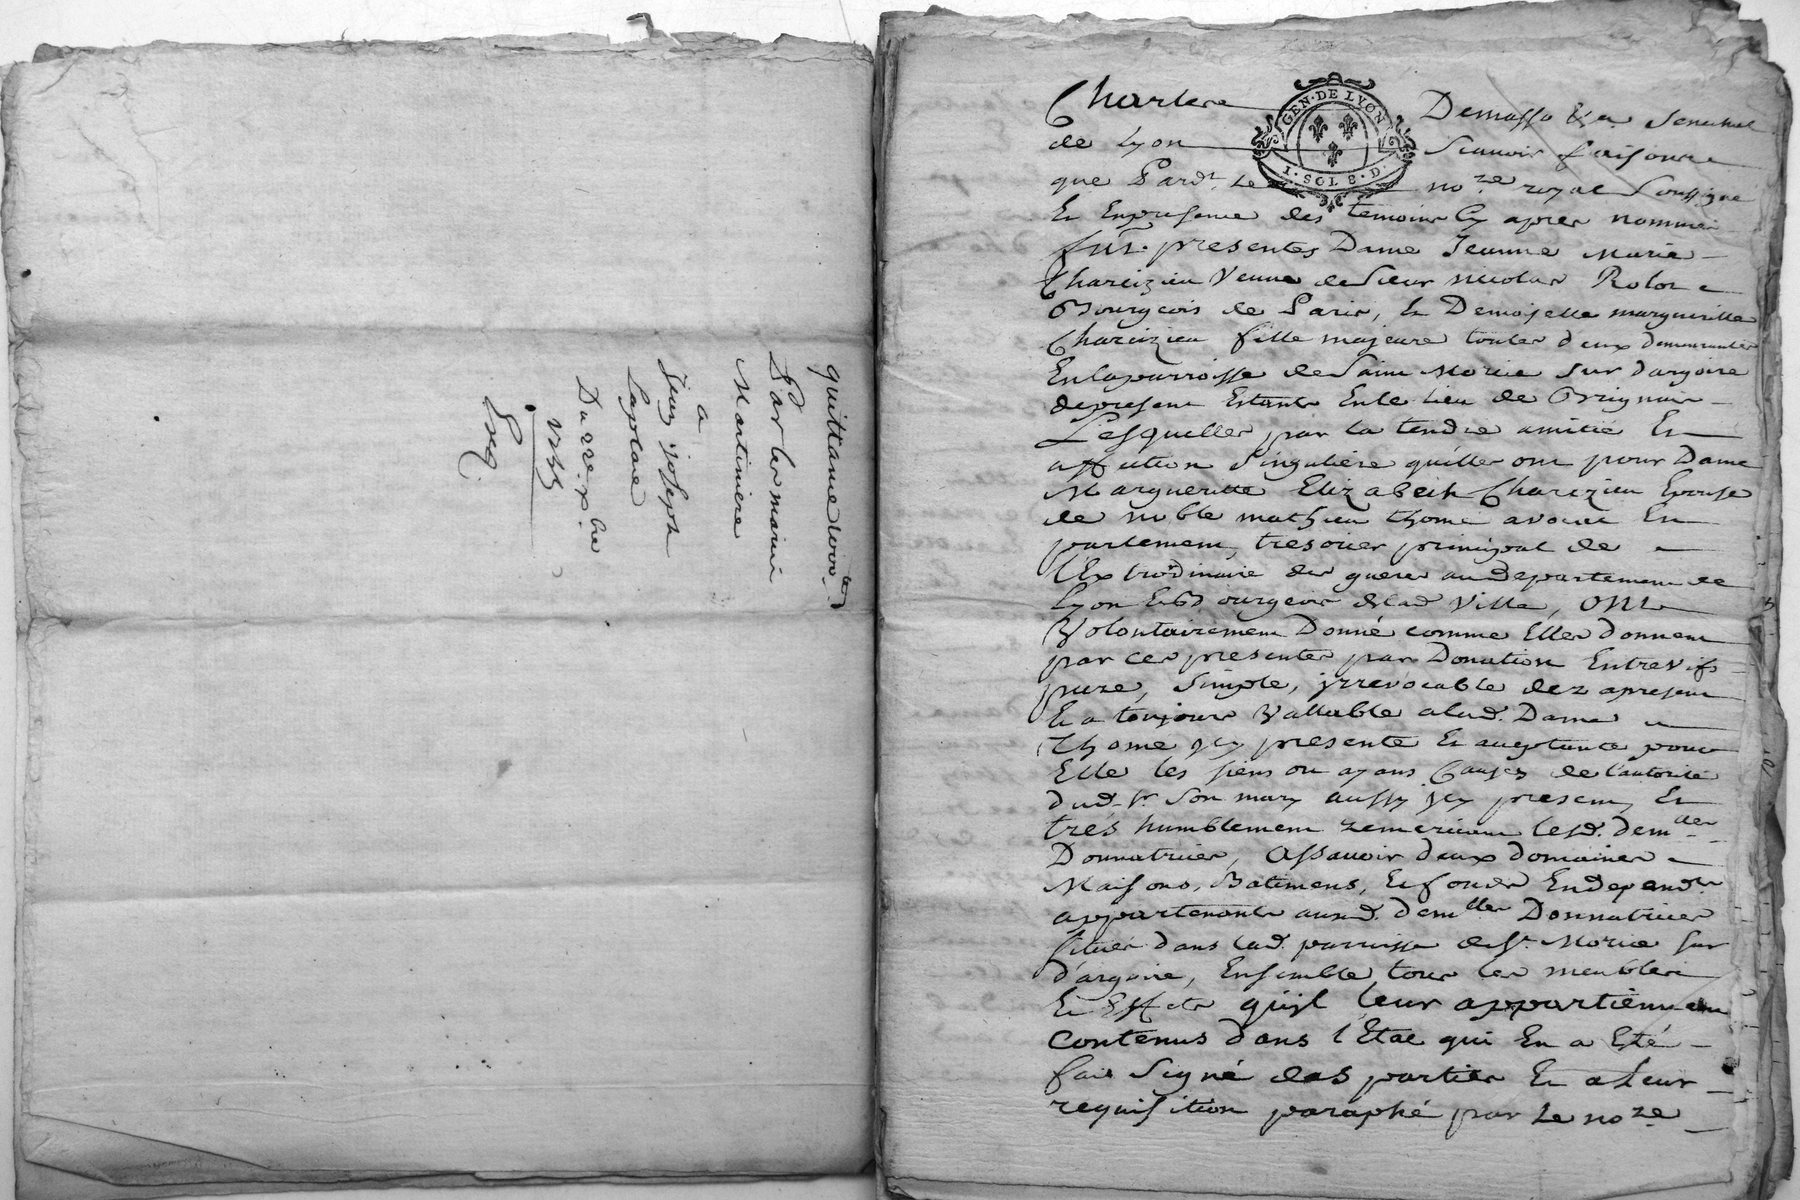 quittance
Par les mariés
Martiniere
a
Jean joseph
Laplace
Du 22e. xbre
Charles Demasso &a. Senechal
GEN·DE LYON
de Lyon Scavoir faisons
que Pardt. Le nore. royal Soussigné
1·SOL 8·D
Et Enpresence des temoins Cy apres nommés
fūt. presentes Dame Jeanne Marie
Charezieu Veuve de Sieur Nicolas Rolot
Bourgeois de Paris, Et Demoiselle marguerille
Charezieu fille majeure toutes deux demeurantes
Enlaparroisse de Saint Morice Sur dargoire
depresent Estants Enle lieu de Brignais
Lesquelles par la tendre amitié Et
affection Singuliére quelles ont pour Dame
Margueritte Elizabeth Charezieu Epouse
de noble mathieu thome avocat En
parlement, tresorier principal de
l'Extrordinaire des gueres audepartement de
Lyon Et Bourgeois delad Ville, ONt
Volontairement Donné comme Elles donnent
par ces presentes par Donation Entrevifs
pure, Simple, yrrevocable dez apresent
Et a toujours Vallable alad. Dame
thome ycy presente Et acceptante pour
Elle les siens ou ayans Causes de l'autorité
dud. Sr. Son mary aussy ycy present, Et
trés humblement remerciant lesd. demlles
Donnatrices, Assavoir deux domaines
Maisons, Batimens, Et fonds Endependts
appartenants auxd. demlles Donnatrices
situés dans lad. parroisse de St. Morice sur
d'argoire, Ensemble tous les meubles
Et Effets qu'jl leur appartiennent
contenus dans l'Etat qui En a Eté
fait Signé des parties Et a Leur
requisition paraphé par Le nore.